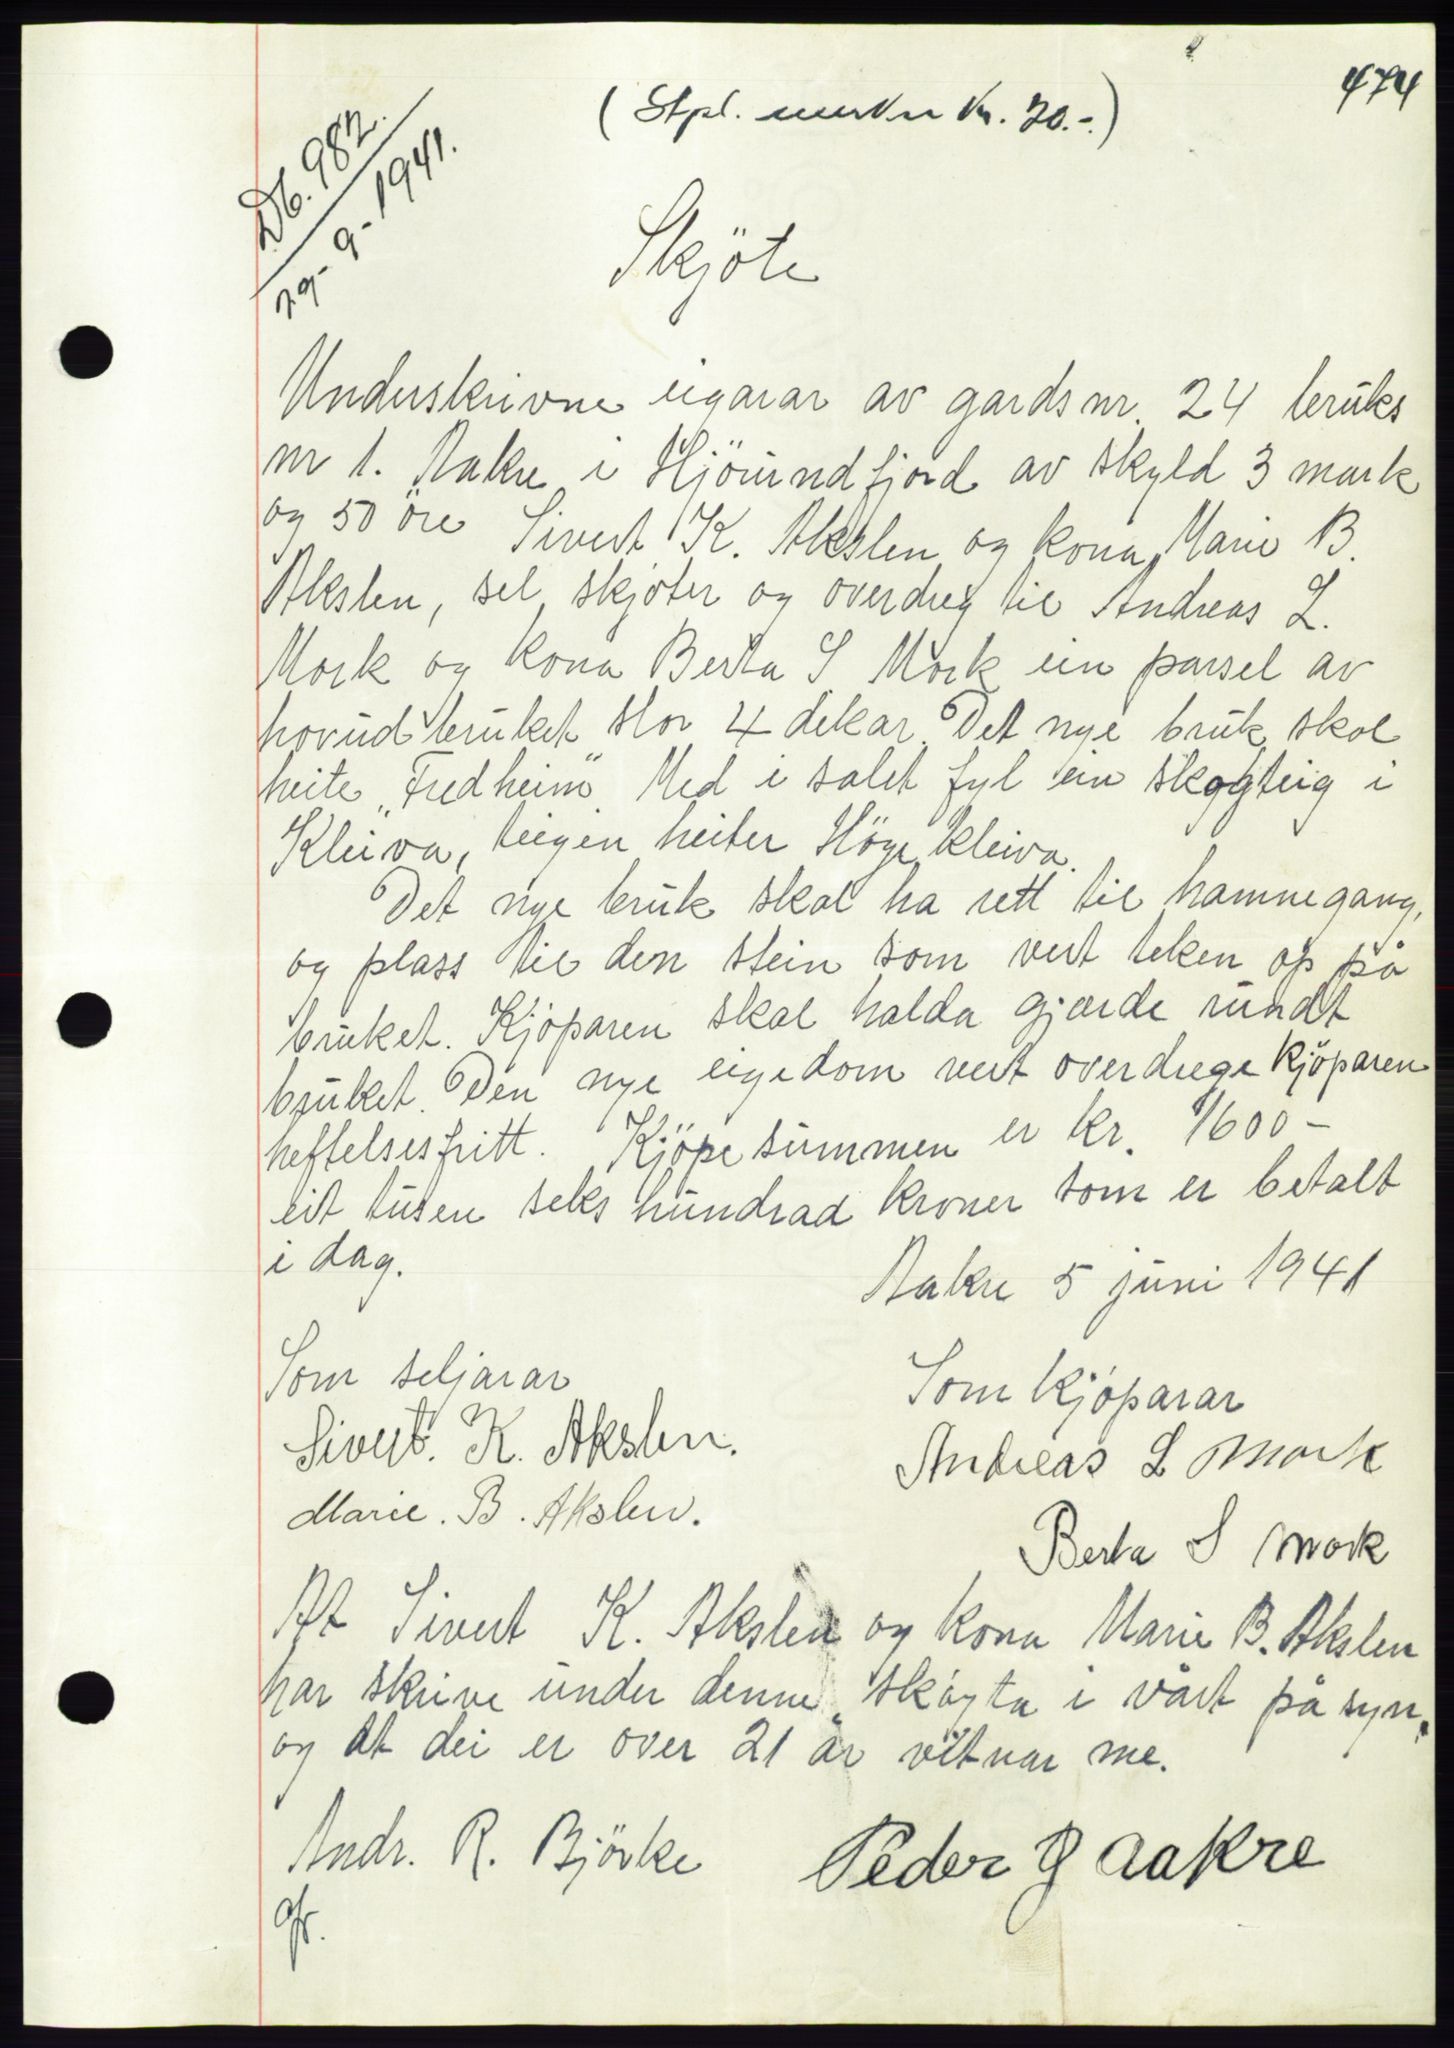 474
(Stpl. merker kr. 20.-)
Db. 982.
29-9-1941.
Skjöte
Underskrivne eigarar av gards nr. 24 bruks
nr 1. Aakre i Hjörundfjord av skyld 3 mark
og 50 öre Sivert K. Akslen og kona Marie B.
Akslen, sel, skjöter og overdreg til Andreas L.
Mork og kona Berta S Mork ein parsel av
hovudbruket stor 4 dekar. Det nye bruk skal
heite „Fredheim" Med i salet fyl ein skogteig i
Kleiva, teigen heiter Höge kleiva.
Det nye bruk skal ha rett til hamnegang,
og plass til den stein som vert teken op på
bruket. Kjöparen skal halda gjærde rundt
bruket. Den nye eigedom vert overdrege kjöparen
heftelsesfritt. Kjöpesummen er kr. 1600-
eit tusen seks hundrad kroner som er betalt
i dag.
Aakre 5 juni 1941
Som seljarar
Sivert. K. Akslen.
Marie. B. Akslen.
Som kjöparar
Andreas L Mork
Berta S Mork
At Sivert K. Akslen og kona Marie B. Akslen
har skrive under denne skøyta i vårt på syn,
og at dei er over 21 år vitnar me.
Andr. R. Björke
Peder J Aakre